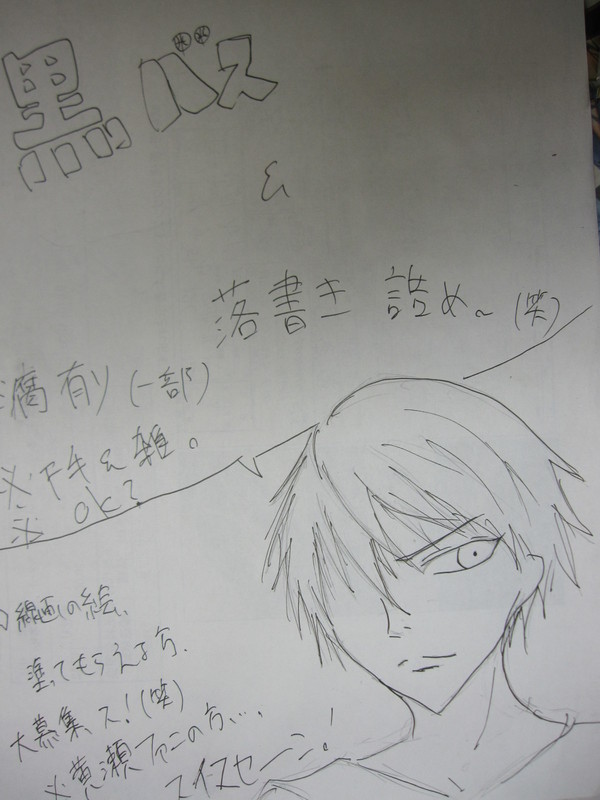 黒バス
&
落書き 詰め~(笑)
腐有り(一部)
※下手&雑。
※ ok?
線画の絵、
塗ってもらえる方、
大募集ス!(笑)
※黄瀬ファンの方…、
スイマセーン!